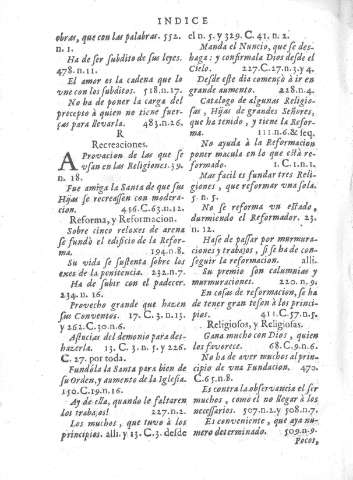 INDICE
obras, que con las palabras. 552.
n. 1.
Ha de ser subdito de sus leyes.
478. n. 11.
El amor es la cadena que lo
vne con los subditos. 518. n. 17.
No ha de poner la carga del
precepto à quien no tiene fuer-
ças para llevarla. 483. n. 26.
R
Recreaciones.
AProvacion de las que se
vsan en las Religiones. 39.
n. 18.
Fue amiga la Santa de que sus
Hijas se recreassen con modera-
cion. 456. C. 63. n. 12.
Reforma, y Reformacion.
Sobre cinco reloxes de arena
se fundò el edificio de la Refor-
ma. 194. n. 8.
Su vida se sustenta sobre los
exes de la penitencia. 232. n. 7.
Ha de subir con el padecer.
234. n. 16.
Provecho grande que hazen
sus Conventos. 17. C. 3. n. 13.
y 262. C. 30. n. 6.
Astucias del demonio para des-
hazerla. 13. C. 3. n. 5. y 226.
C. 27. por toda.
Fundòla la Santa para bien de
su Orden, y aumento de la Iglesia.
150. C. 19. n. 16.
Ay de ella, quando le faltaren
los trabajos! 227. n. 2.
Los muchos, que tuvo à los
principios. alli. y 13. C. 3. desde
el n. 5. y 329. C. 41. n. 2.
Manda el Nuncio, que se des-
haga: y confirmala Dios desde el
Cielo. 227. C. 27. n. 3. y 4.
Desde este dia començò à ir en
grande aumento. 228. n. 4.
Catalogo de algunas Religio-
sas, Hijas de grandes Señores,
que ha tenido, y tiene la Refor-
ma. 111. n. 6. & seq.
No ayuda à la Reformacion
poner macula en lo que està re-
formado. 1. C. 1. n. 1.
Mas facil es fundar tres Reli-
giones, que reformar vna sola.
5. n. 5.
No se reforma vn estado,
durmiendo el Reformador. 23.
n. 12.
Hase de passar por murmura-
ciones y trabajos, si se ha de con-
seguir la reformacion. alli.
Su premio son calumnias y
murmuraciones. 220. n. 9.
En cosas de reformacion, se ha
de tener gran teson à los princi-
pias. 411. C. 57. n. 5.
Religiosos, y Religiosas.
Gana mucho con Dios, quien
les favorece. 68. C. 9. n. 6.
No ha de aver muchos al prin-
cipio de vna Fundacion. 470.
C. 65. n. 8.
Es contra la observancia el ser
muchos, como el no llegar à los
necessarios. 507. n. 2. y 508. n. 7.
Es conveniente, que aya nu-
mero determinado. 509. n. 9.
Pocos,